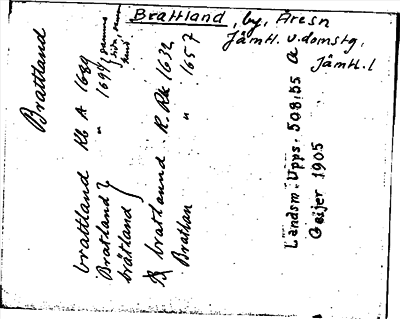 Brattland, by, Åresn
Jämtl. v. domstg.
Jämtl. l
Brattland
brattland Kb A 1689
Bratland } " 1694 } samma
bråtland
bratland K. Rk 1632
Brathan " 1657
Landsm. Upps. 508:55 a
Geijer 1905